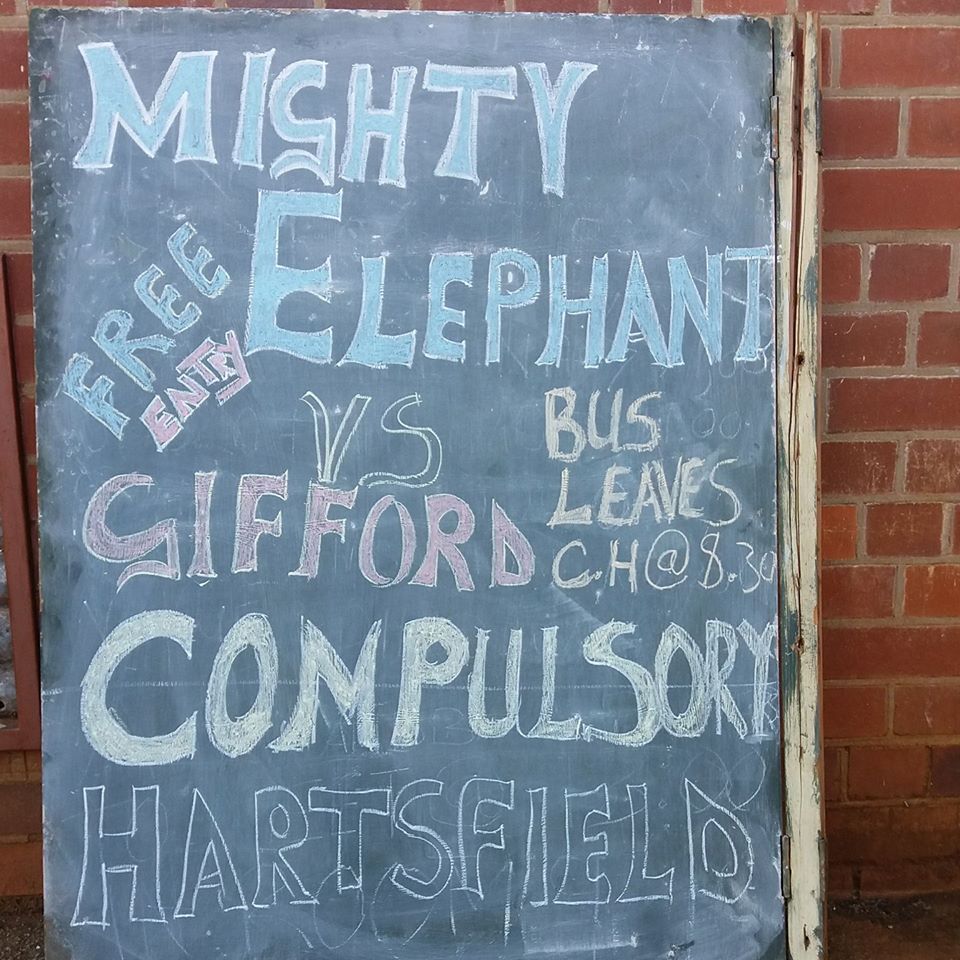 MIGHTY
ELEPHANT
FREE
ENTRY
VS
GIFFORD
BUS
LEAVES
C.H@8.30
COMPULSORY
HARTSFIELD